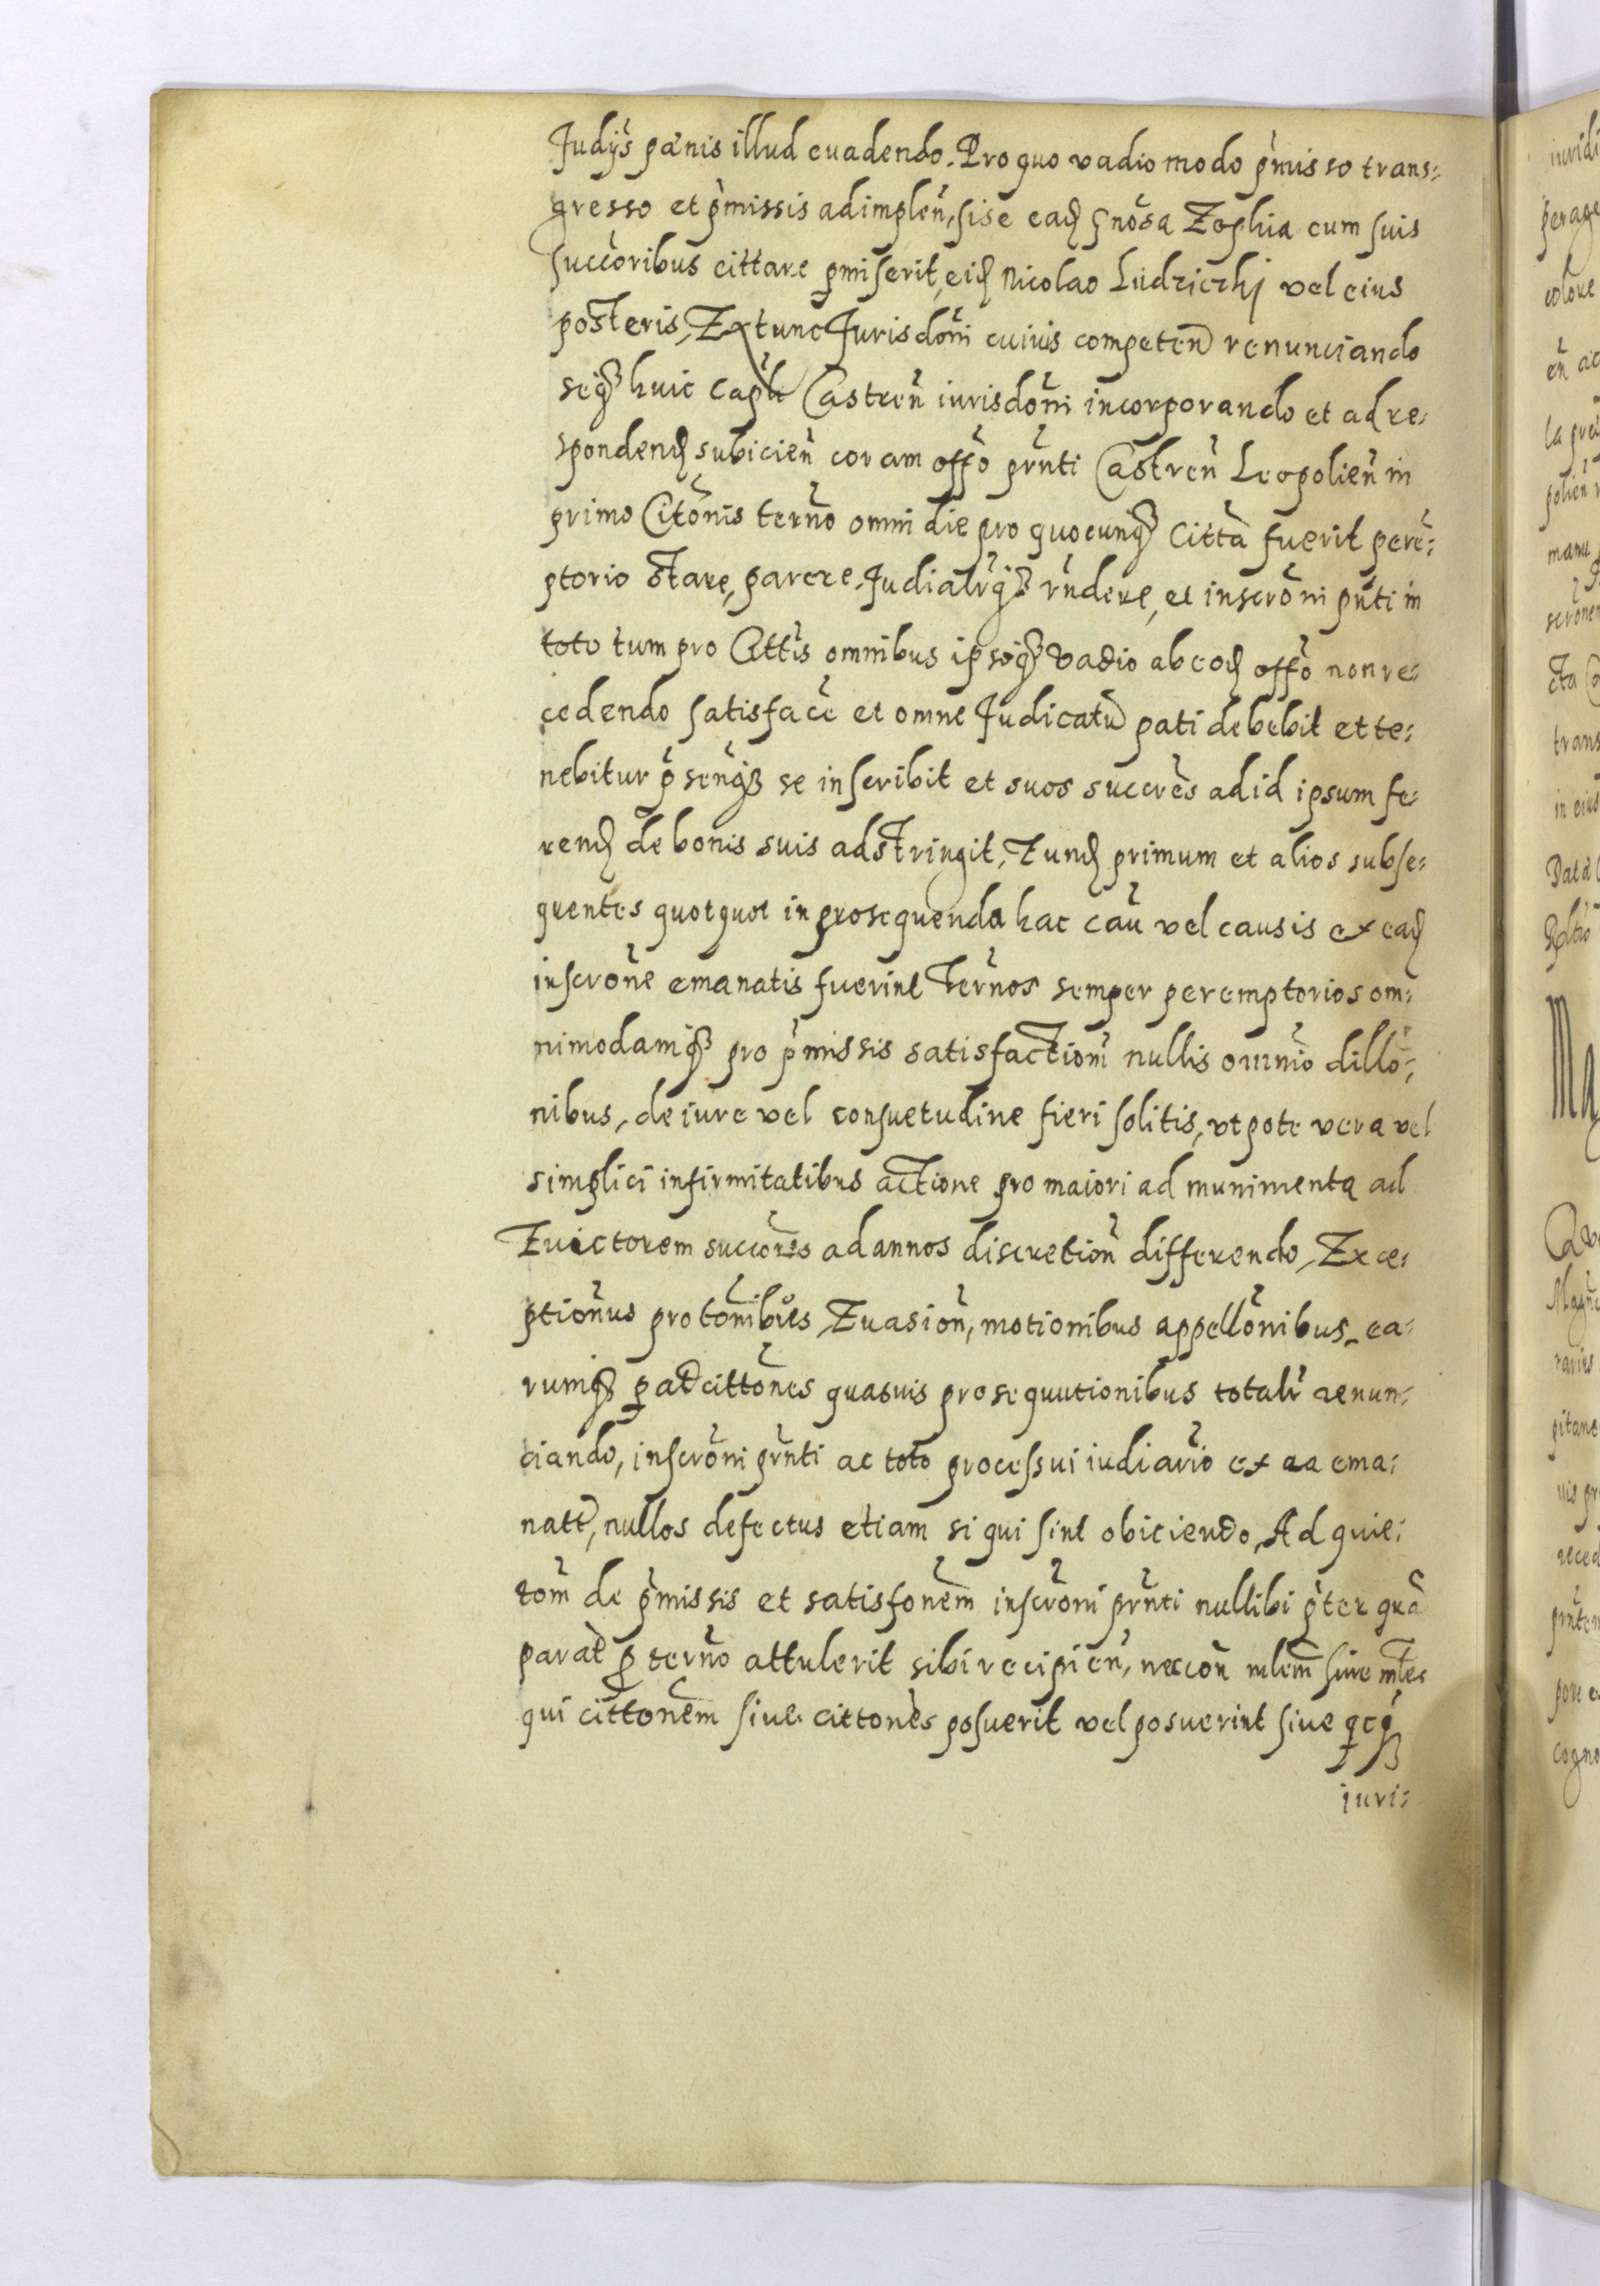 Judijs pænis illud euadendo. Pro quo vadio modo p̃misso trans:
gresso et p̃missis adimpleñ, si se eadꝫ gñosa Zophia cum suis
succoribus cittare pmiserit, eidꝫ Nicolao Ludziczki vel eius
posteris, Extunc Jurisdom̃ cuiuis competeñ renunciando
seqꝫ huic Capli Castreñ iurisdoñi incorporando et ad re:
spondendꝫ subicieñ coram offo prñti Castreñ Leopolieñ in
primo Citõnis termo omni die pro quocunqꝫ Citta fuerit perẽ:
ptorio stare, parere Judialrqꝫ rñdere, et inscroñi pñti in
toto tum pro Cittis omnibus ipsoqꝫ vadio ab eodꝫ offo non re:
cedendo satisface et omne Judicatũ pati debebit et te:
nebitur p̃senqꝫ se inscribit et suos succres ad id ipsum fe:
rendꝫ de bonis suis adstringit, Tundꝫ primum et alios subse:
quentes quotquot in prosequenda hac cau vel causis ex eadꝫ
inscrone emanatis fuerint Termos semper peremptorios om:
nimodamqꝫ pro p̃missis satisfactiom̃ nullis omnio dillo:
nibus, de iure vel consuetudine fieri solitis, vtpote vera vel
simplici infirmitatibus actione pro maiori ad munimenta ad
Euictorem succores ad annos discretioñ differendo, Exce:
ptionus protonibus, Euasioñ, motionibus appellonibus, ea:
rumqꝫ cittones quasuis prosequutionibus totalr renun:
ciando, inscroni prñti ac toto processui iudiario ex ea ema:
natt, nullos defectus etiam si qui sint obiciendo, Ad quie:
tom̃ de p̃missis et satisfonem inscroni prñti nullibi p̃ter qua
parat p termo attulerit sibi recipieñ, neccon mlem siue mles
qui cittonem siue cittones posuerit vel posuerint siue qcqꝫ
iuri: